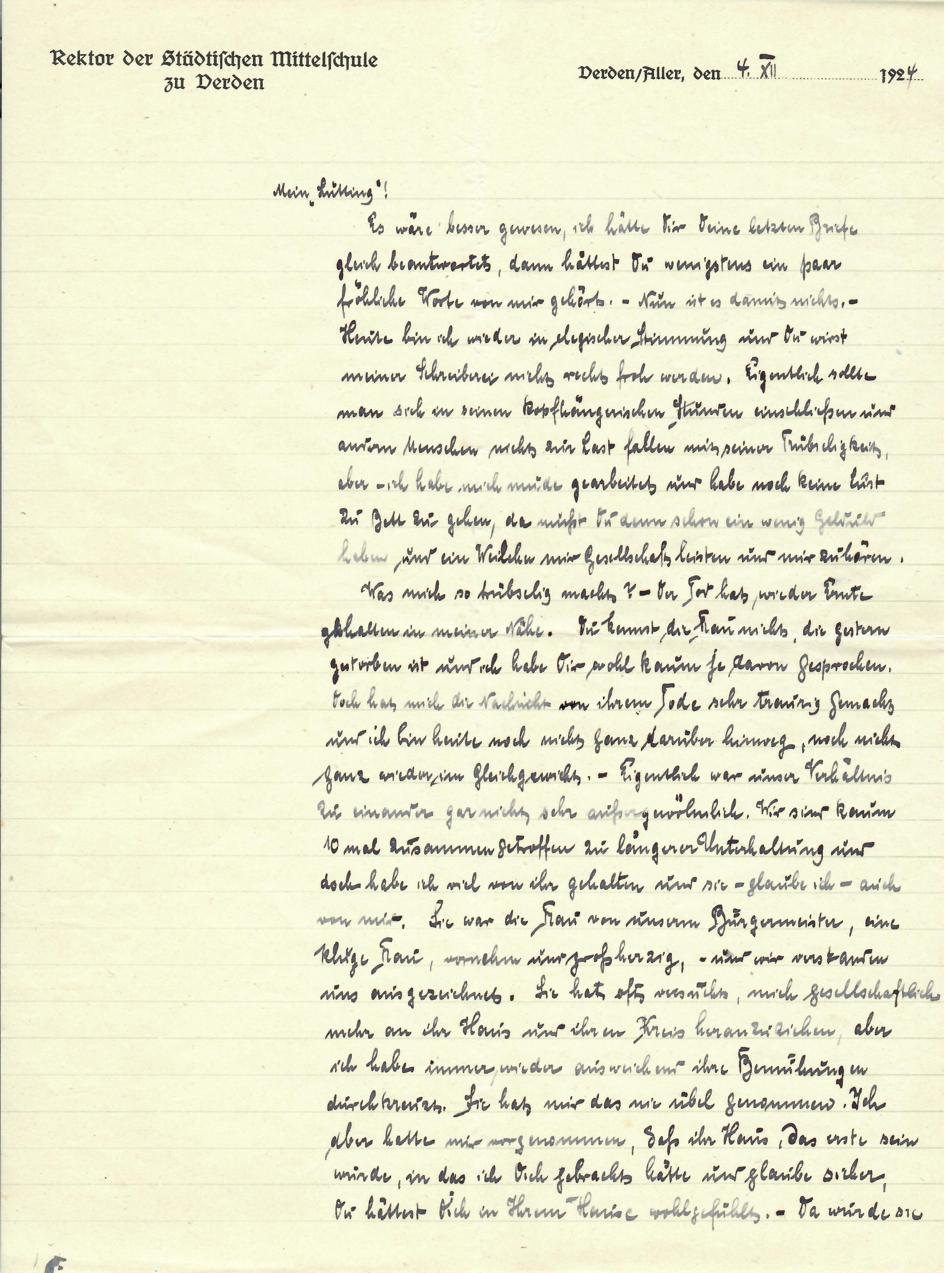 Rektor der Städtischen Mittelschule
zu Verden
Verden/Aller, den 4. XII 1924
Mein „Lütting"!
Es wäre besser gewesen, ich hätte Dir Deine letzten Briefe
gleich beantwortet, dann hättest Du wenigstens ein paar
fröhliche Worte von mir gehört. - Nun ist es damit nichts. -
Heute bin ich wieder in elegischer Stimmung und Du wirst
meiner Schreiberei nicht recht froh werden. Eigentlich sollte
man sich in seinen kopfhängerischen Stunden einschließen und
andern Menschen nicht zur Last fallen mit seiner Trübseligkeit,
aber - ich habe mich müde gearbeitet und habe noch keine Lust
zu Bett zu gehen, da mußt Du denn schon ein wenig Geduld
haben und ein Weilchen mir Gesellschaft leisten und mir zuhören.
Was mich so trübselig macht? - Der Tod hat wieder Ernte
gehalten in meiner Nähe. Du kennst die Frau nicht, die gestern
gestorben ist und ich habe Dir wohl kaum je davon gesprochen.
Doch hat mich die Nachricht von ihrem Tode sehr traurig gemacht
und ich bin heute noch nicht ganz darüber hinweg, noch nicht
ganz wieder im Gleichgewicht. - Eigentlich war unser Verhältnis
zu einander gar nicht sehr außergewöhnlich. Wir sind kaum
10 mal zusammen getroffen zu längerer Unterhaltung und
doch habe ich viel von ihr gehalten und sie - glaube ich - auch
von mir. Sie war die Frau von unserm Bürgermeister, eine
kluge Frau, vornehm und großherzig, - und wir verstanden
uns ausgezeichnet. Sie hat oft versucht, mich gesellschaftlich
mehr an ihr Haus und ihren Kreis heranzuziehen, aber
ich habe immer wieder ausweichend ihre Bemühungen
durchkreuzt. Sie hat mir das nie übel genommen. Ich
aber hatte mir vorgenommen, daß ihr Haus, das erste sein
würde, in das ich Dich gebracht hätte und glaube sicher,
Du hättest Dich in Ihrem Hause wohlgefühlt. - Da wurde sie